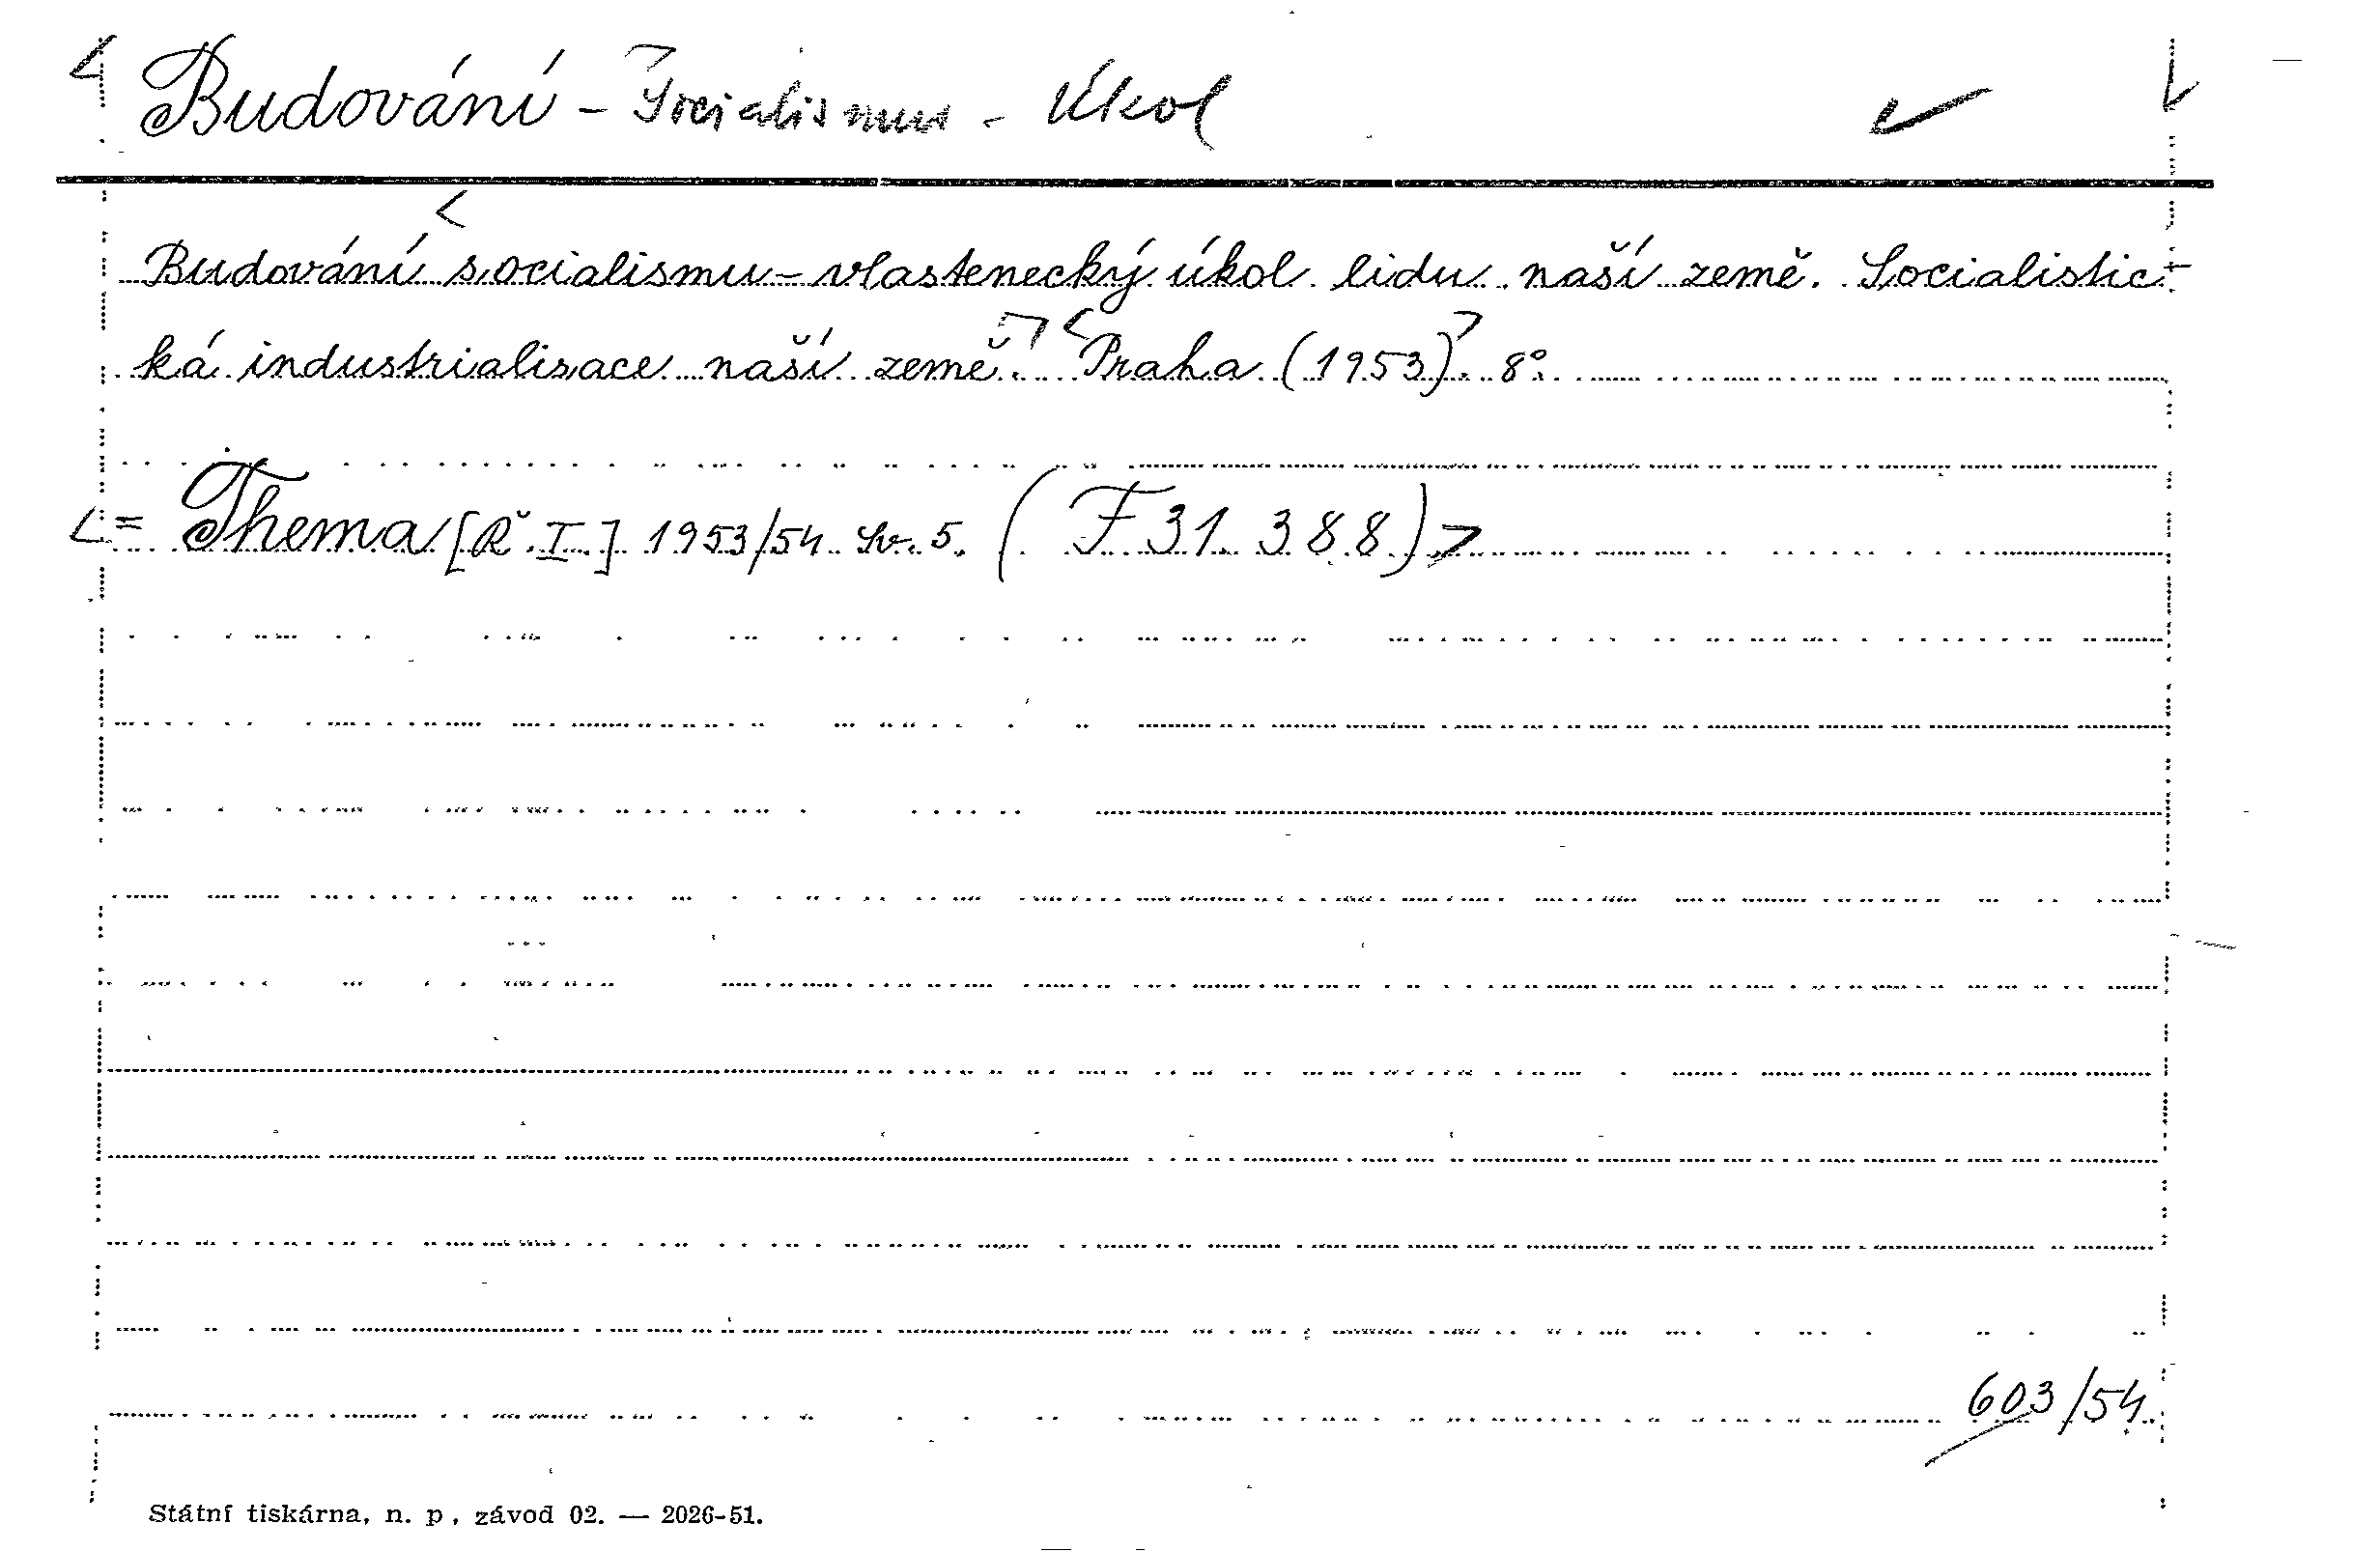 Budování - Socialismus - Úkol
Budování socialismu - vlastenecký úkol lidu naší země. Socialistic-
ká industrialisace naší země. Praha (1953). 8°.
= Thema [Ř. I.] 1953/54 Sv. 5. (F 31.388)
603/54.
Státní tiskárna, n. p., závod 02. — 2026-51.